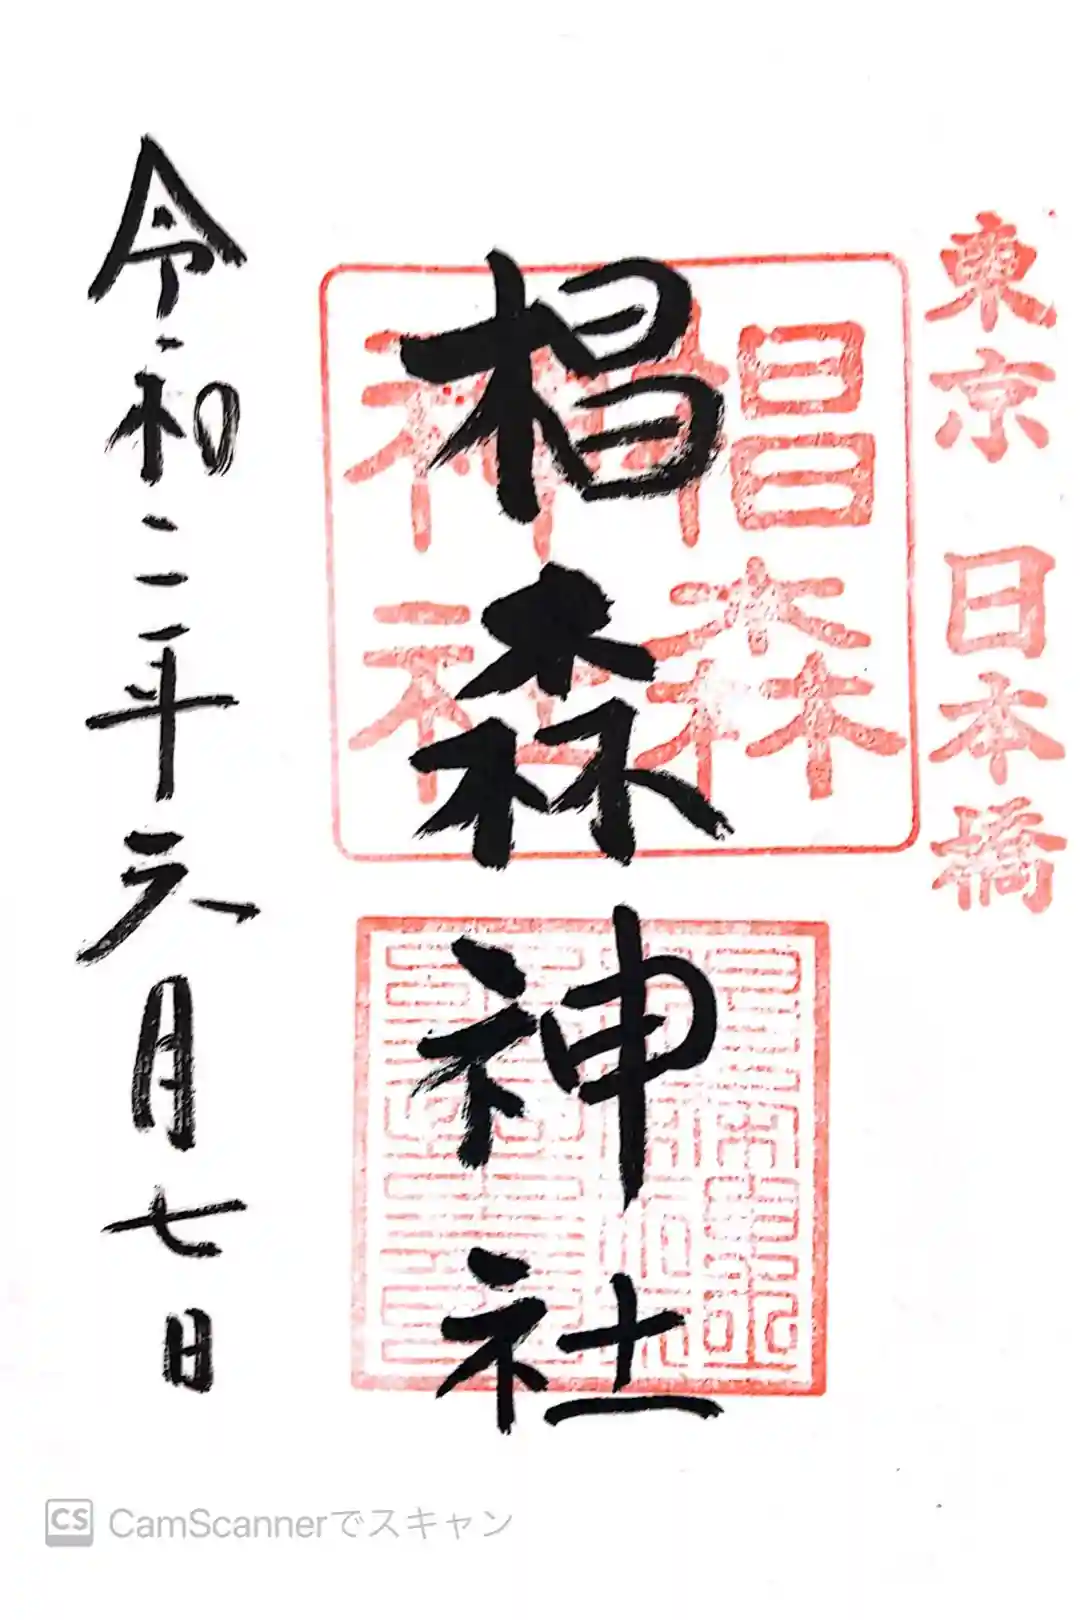 東京 日本橋
椙森神社
椙森
神社
令和二年六月七日
CS CamScannerでスキャン